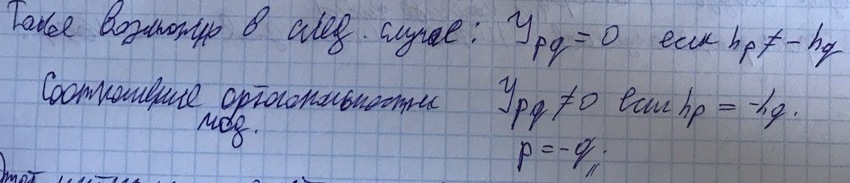 Такое возможно в след. случае: Y_pq = 0 если h_p ≠ - h_q
Соотношение ортогональности Y_pq ≠ 0 если h_p = - h_q.
мод. p = -q